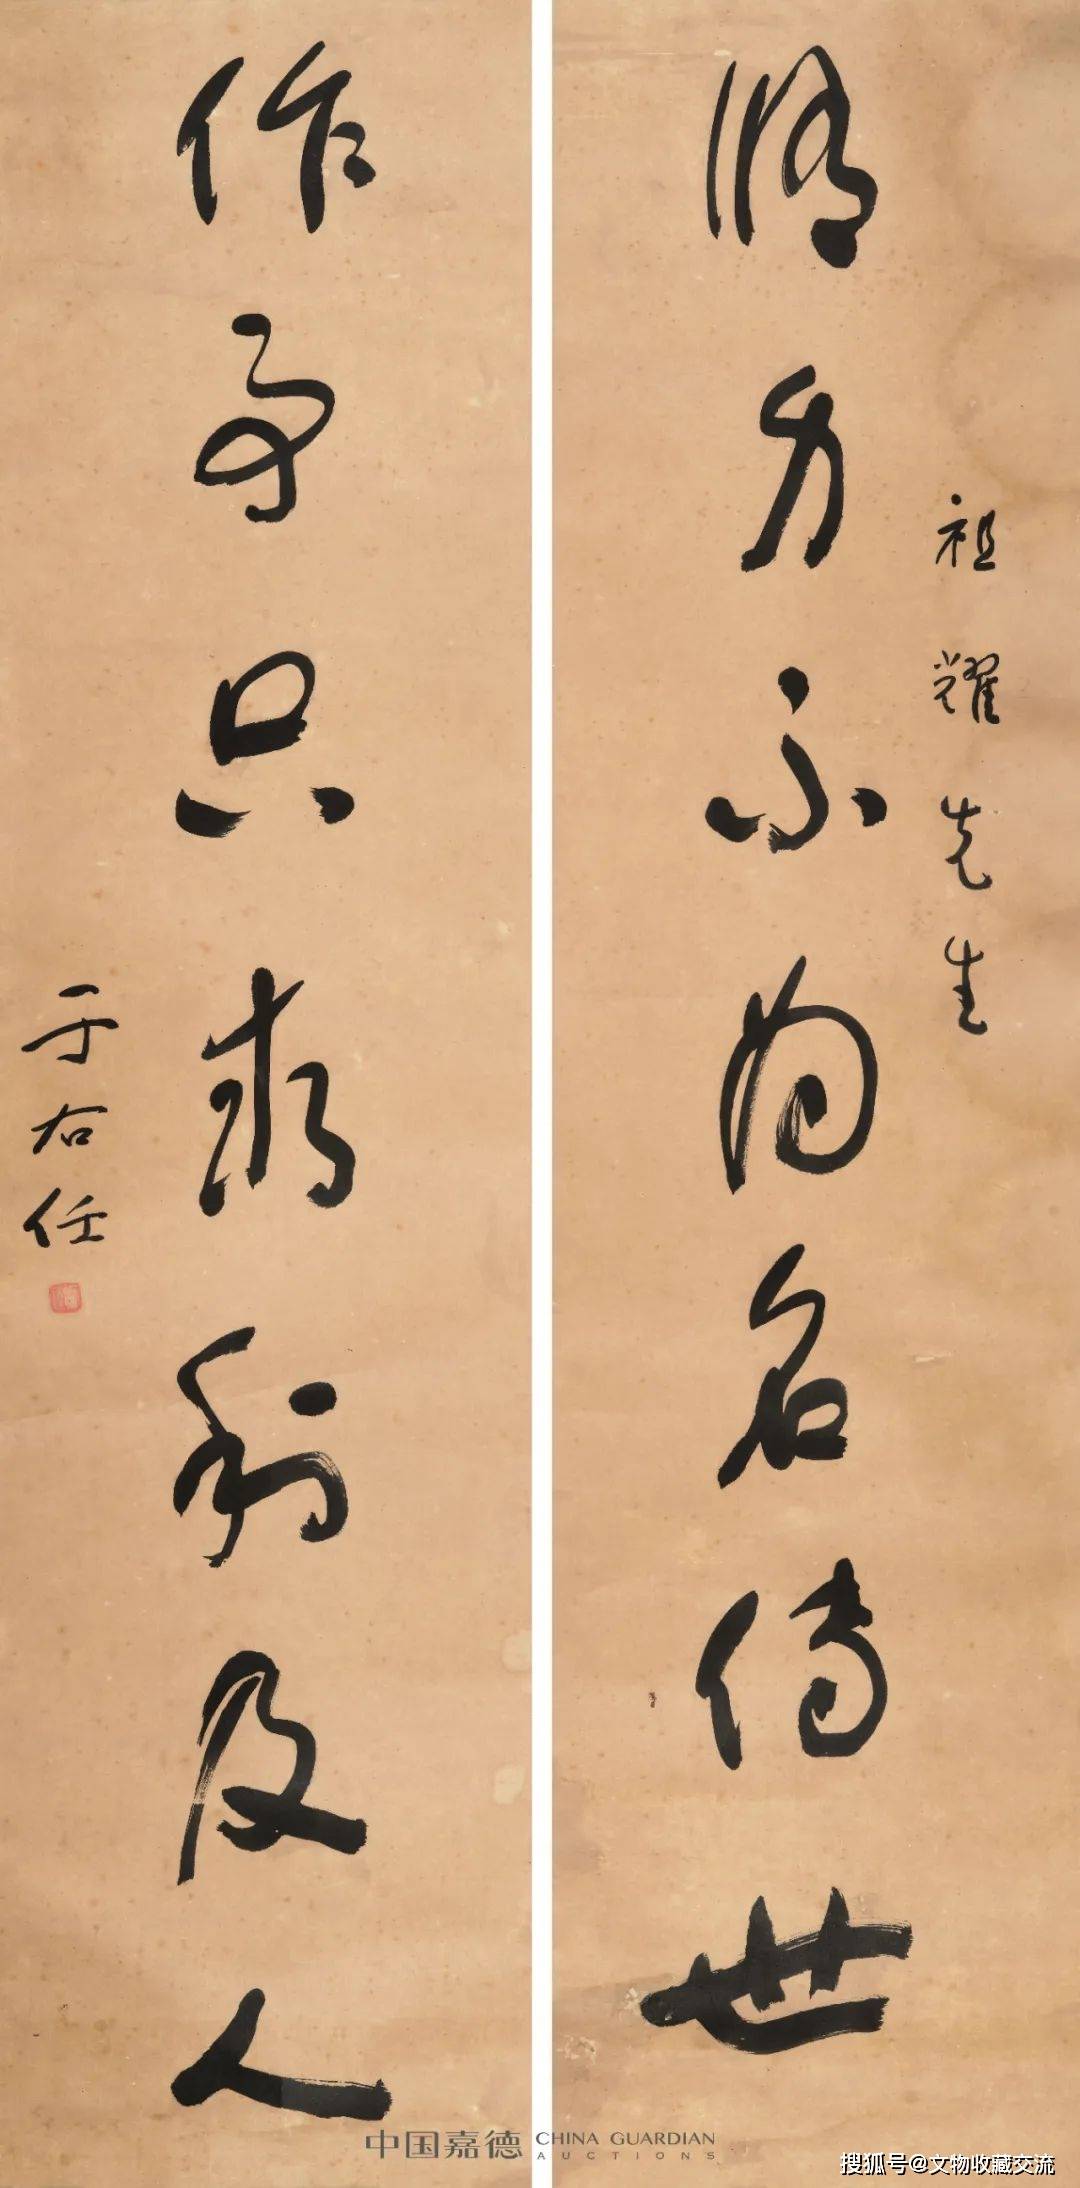 祖耀先生
修身不為名傳世
作事只求利及人
于右任
中国嘉德 CHINA GUARDIAN
AUCTIONS
搜狐号@文物收藏交流